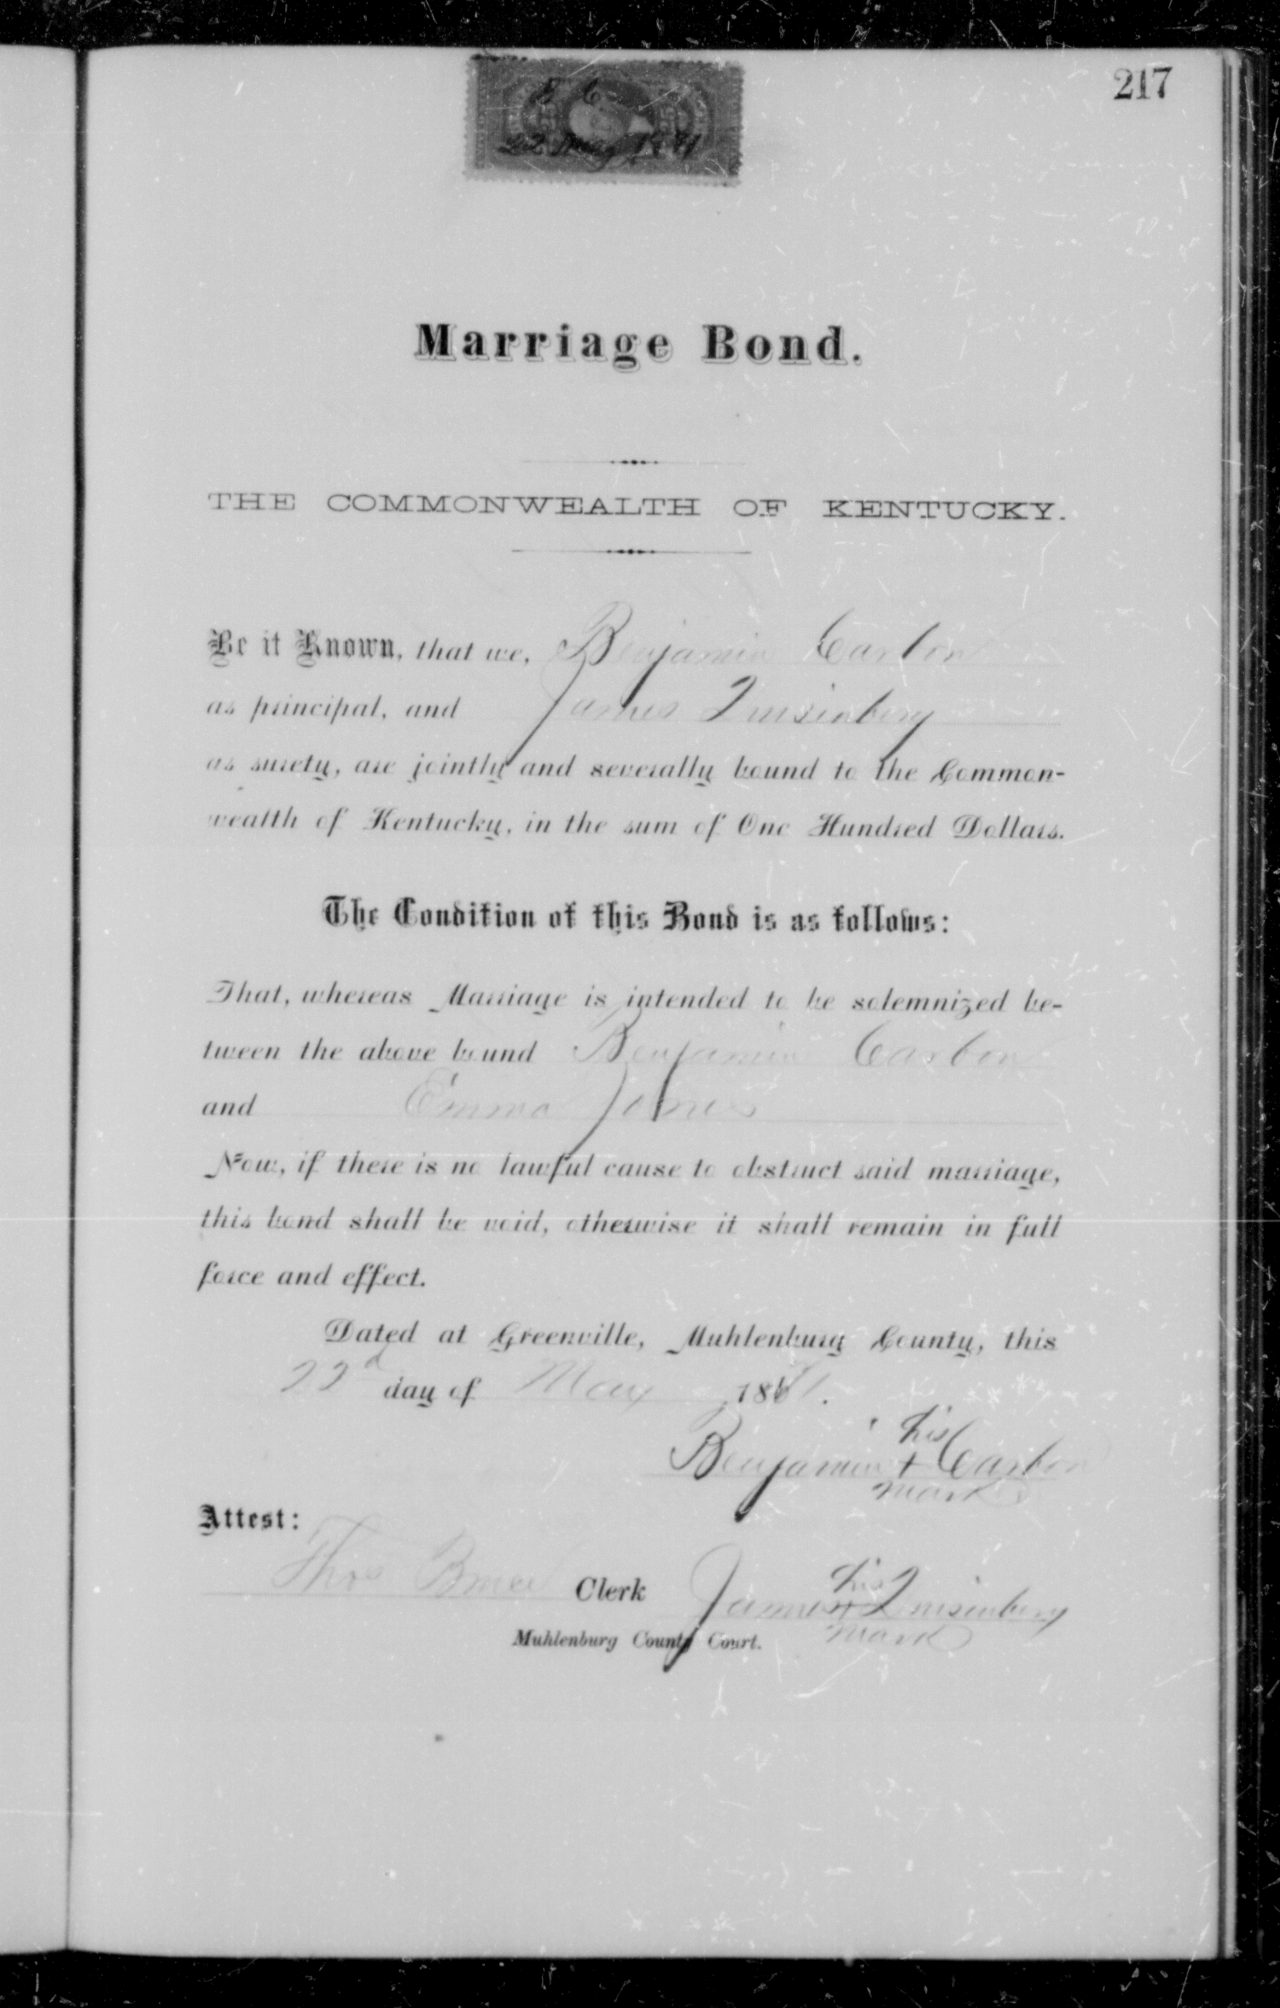 217
B C
22 May 1871
Marriage Bond.
THE COMMONWEALTH OF KENTUCKY.
Be it Known, that we, Benjamin Carbon
as principal, and James Quisenbery
as surety, are jointly and severally bound to the Common-
wealth of Kentucky, in the sum of One Hundred Dollars.
The Condition of this Bond is as follows:
That, whereas Marriage is intended to be solemnized be-
tween the above bound Benjamin Carbon
and Emma Jones
Now, if there is no lawful cause to obstruct said marriage,
this bond shall be void, otherwise it shall remain in full
force and effect.
Dated at Greenville, Muhlenburg County, this
22d day of May 1871.
his
Benjamin + Carbon
mark
Attest:
Thos Bruce Clerk
his
James + Quisenbery
mark
Muhlenburg County Court.